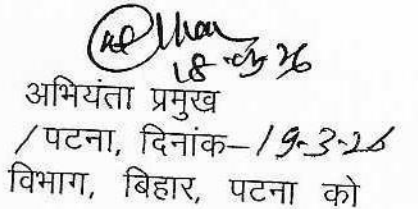 अभियंता प्रमुख
/पटना, दिनांक–19-3-26
विभाग, बिहार, पटना को